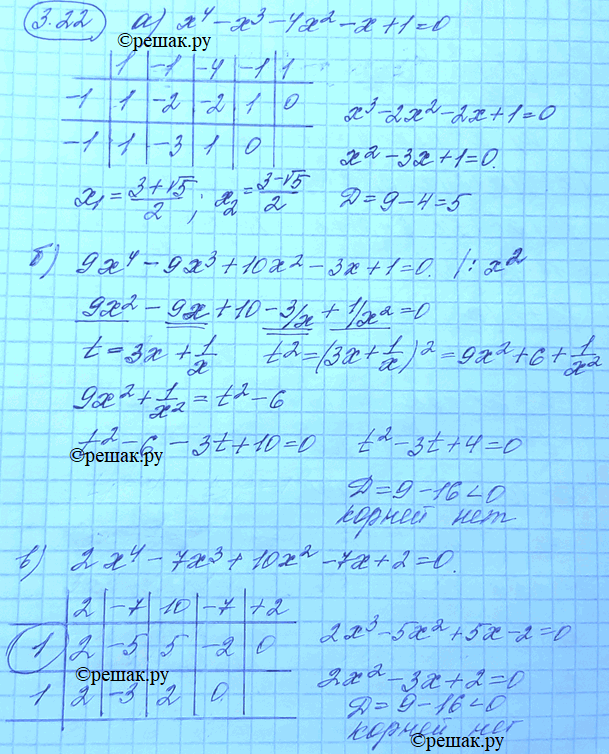 3.22 а) x⁴ - x³ - 4x² - x + 1 = 0
©решак.ру
1 | -1 | -4 | -1 | 1
-1 | 1 | -2 | -2 | 1 | 0
x³ - 2x² - 2x + 1 = 0
-1 | 1 | -3 | 1 | 0
x² - 3x + 1 = 0.
x₁ = (3+√5)/2 ; x₂ = (3-√5)/2 D = 9 - 4 = 5
б) 9x⁴ - 9x³ + 10x² - 3x + 1 = 0. | : x²
9x² - 9x + 10 - 3/x + 1/x² = 0
t = 3x + 1/x t² = (3x + 1/x)² = 9x² + 6 + 1/x²
9x² + 1/x² = t² - 6
t² - 6 - 3t + 10 = 0 t² - 3t + 4 = 0
©решак.ру
D = 9 - 16 < 0
корней нет
в) 2x⁴ - 7x³ + 10x² - 7x + 2 = 0.
2 | -7 | 10 | -7 | +2
1 | 2 | -5 | 5 | -2 | 0
2x³ - 5x² + 5x - 2 = 0
©решак.ру
1 | 2 | -3 | 2 | 0
2x² - 3x + 2 = 0
D = 9 - 16 < 0
корней нет
©решак.ру